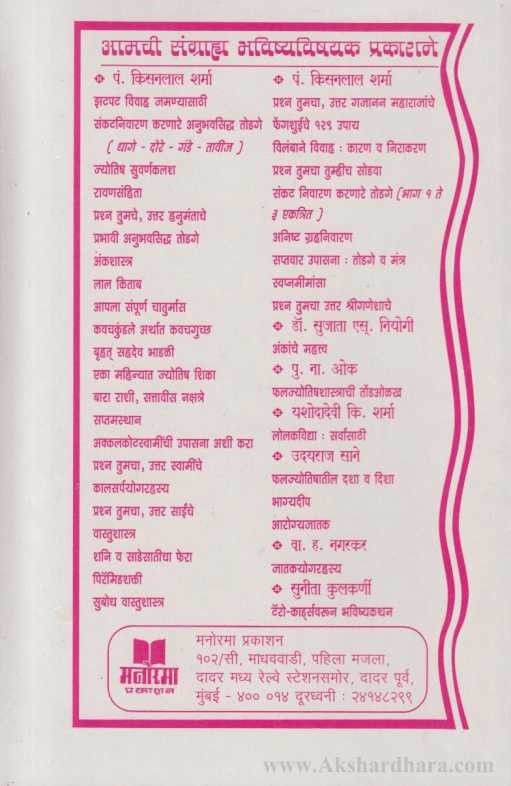 आमची संग्राह्य भविष्यविषयक प्रकाशने
❖ पं. किसनलाल शर्मा
झटपट विवाह जमण्यासाठी
संकटनिवारण करणारे अनुभवसिद्ध तोडगे
( धागे - दोरे - गंडे - तावीज )
ज्योतिष सुवर्णकलश
रावणसंहिता
प्रश्न तुमचे, उत्तर हनुमंताचे
प्रभावी अनुभवसिद्ध तोडगे
अंकशास्त्र
लाल किताब
आपला संपूर्ण चातुर्मास
कवचकुंडले अर्थात कवचगुच्छ
बृहत् सहदेव भाडळी
एका महिन्यात ज्योतिष शिका
बारा राशी, सत्तावीस नक्षत्रे
सप्तमस्थान
अक्कलकोटस्वामींची उपासना अशी करा
प्रश्न तुमचा, उत्तर स्वामींचे
कालसर्पयोगरहस्य
प्रश्न तुमचा, उत्तर साईंचे
वास्तुशास्त्र
शनि व साडेसातीचा फेरा
पिरॅमिडशक्ती
सुबोध वास्तुशास्त्र
❖ पं. किसनलाल शर्मा
प्रश्न तुमचा, उत्तर गजानन महाराजांचे
फेंगशुईचे १२९ उपाय
विलंबाने विवाह : कारण व निराकरण
प्रश्न तुमचा तुम्हीच सोडवा
संकट निवारण करणारे तोडगे (भाग १ ते
३ एकत्रित )
अनिष्ट ग्रहनिवारण
सप्तवार उपासना : तोडगे व मंत्र
स्वप्नमीमांसा
प्रश्न तुमचा उत्तर श्रीगणेशाचे
❖ डॉ. सुजाता एस्. नियोगी
अंकांचे महत्त्व
❖ पु. ना. ओक
फलज्योतिषशास्त्राची तोंडओळख
❖ यशोदादेवी कि. शर्मा
लोलकविद्या : सर्वांसाठी
❖ उदयराज साने
फलज्योतिषातील दशा व दिशा
भाग्यदीप
आरोग्यजातक
❖ वा. ह. नगरकर
जातकयोगरहस्य
❖ सुनीता कुलकर्णी
टॅरो-कार्ड्सवरून भविष्यकथन
मनोरमा
प्रकाशन
मनोरमा प्रकाशन
१०२/सी, माधववाडी, पहिला मजला,
दादर मध्य रेल्वे स्टेशनसमोर, दादर पूर्व,
मुंबई - ४०० ०१४ दूरध्वनी : २४१४८२९९
www.Akshardhara.com